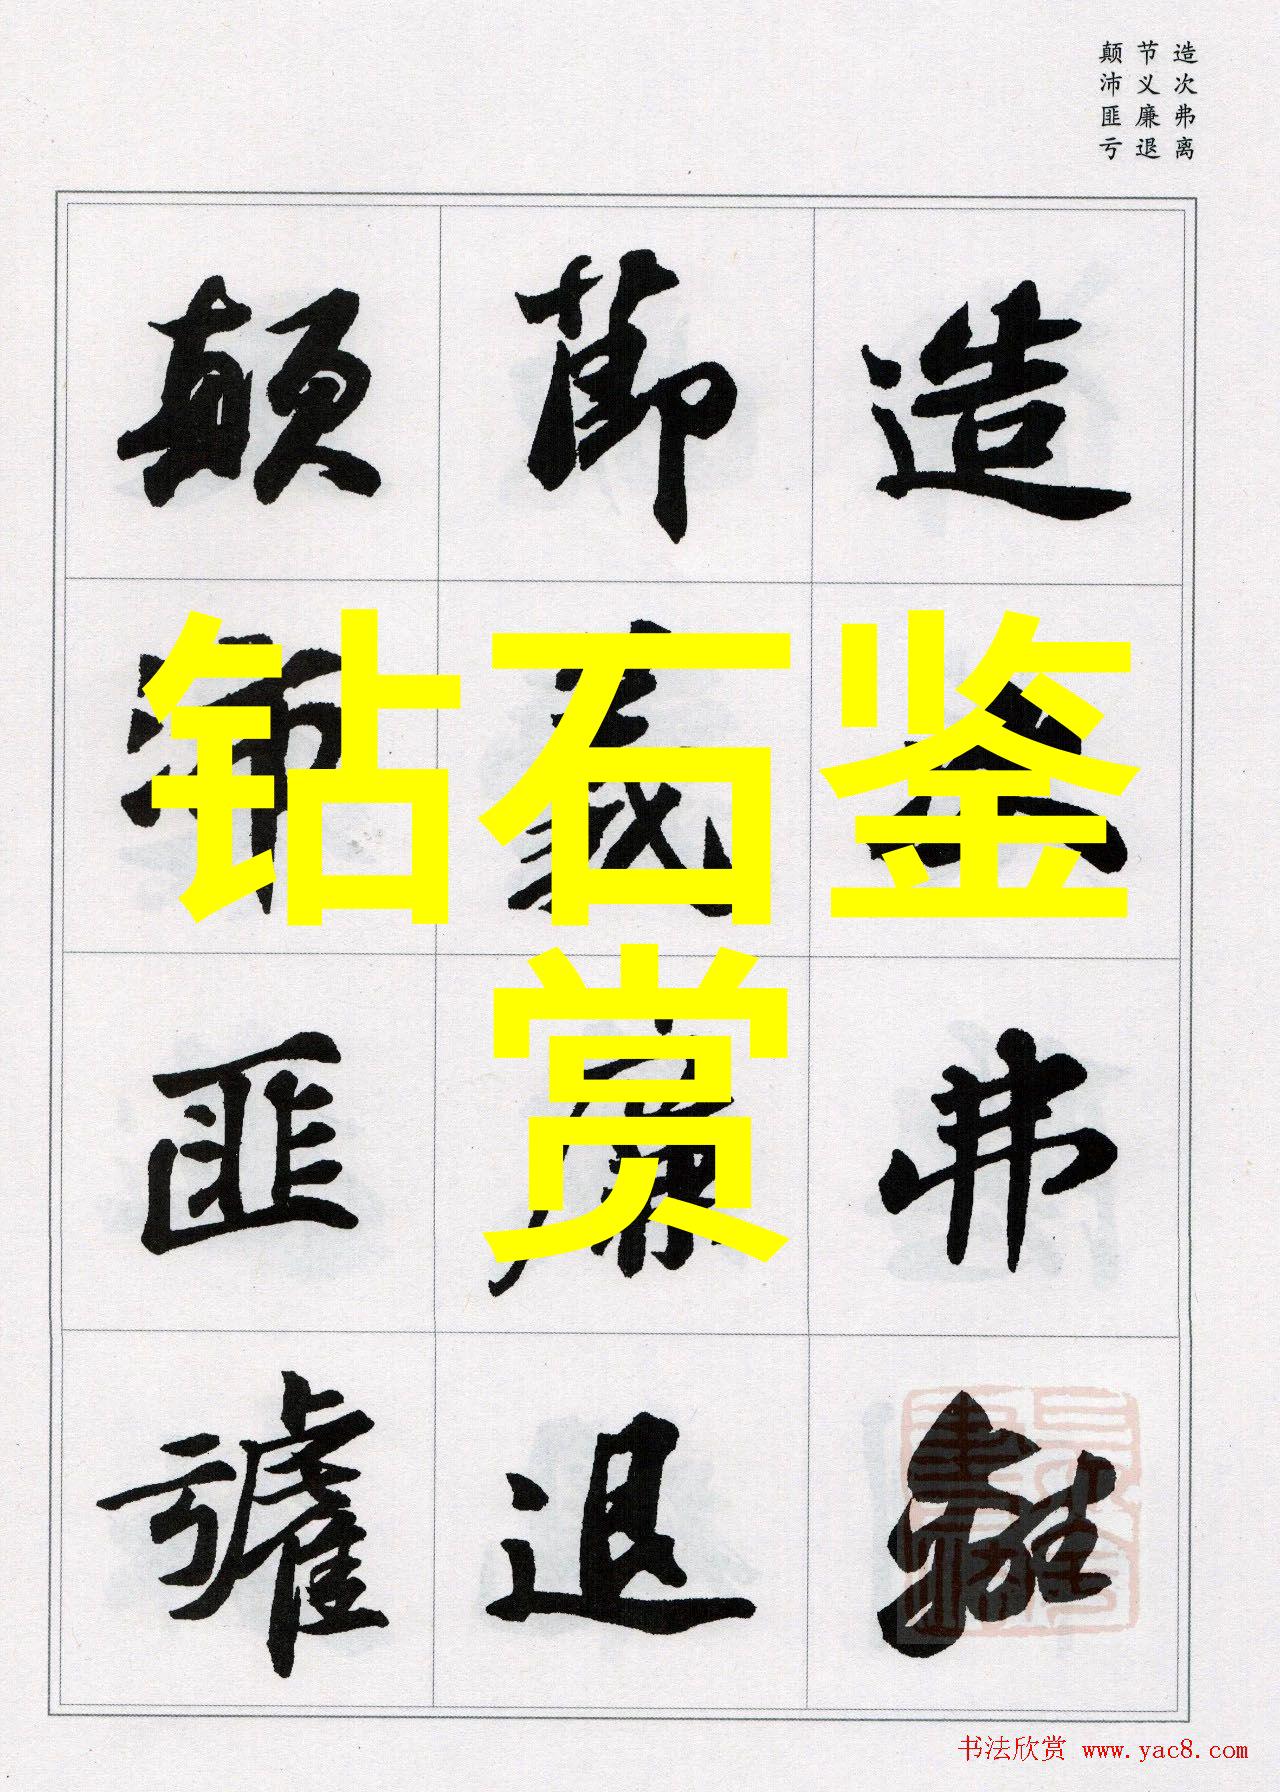 造次弗离
节义廉退
颠沛匪亏
造次弗離
節義廉退
顛沛匪虧
钻石鉴
赏
书法欣赏 www.yac8.com